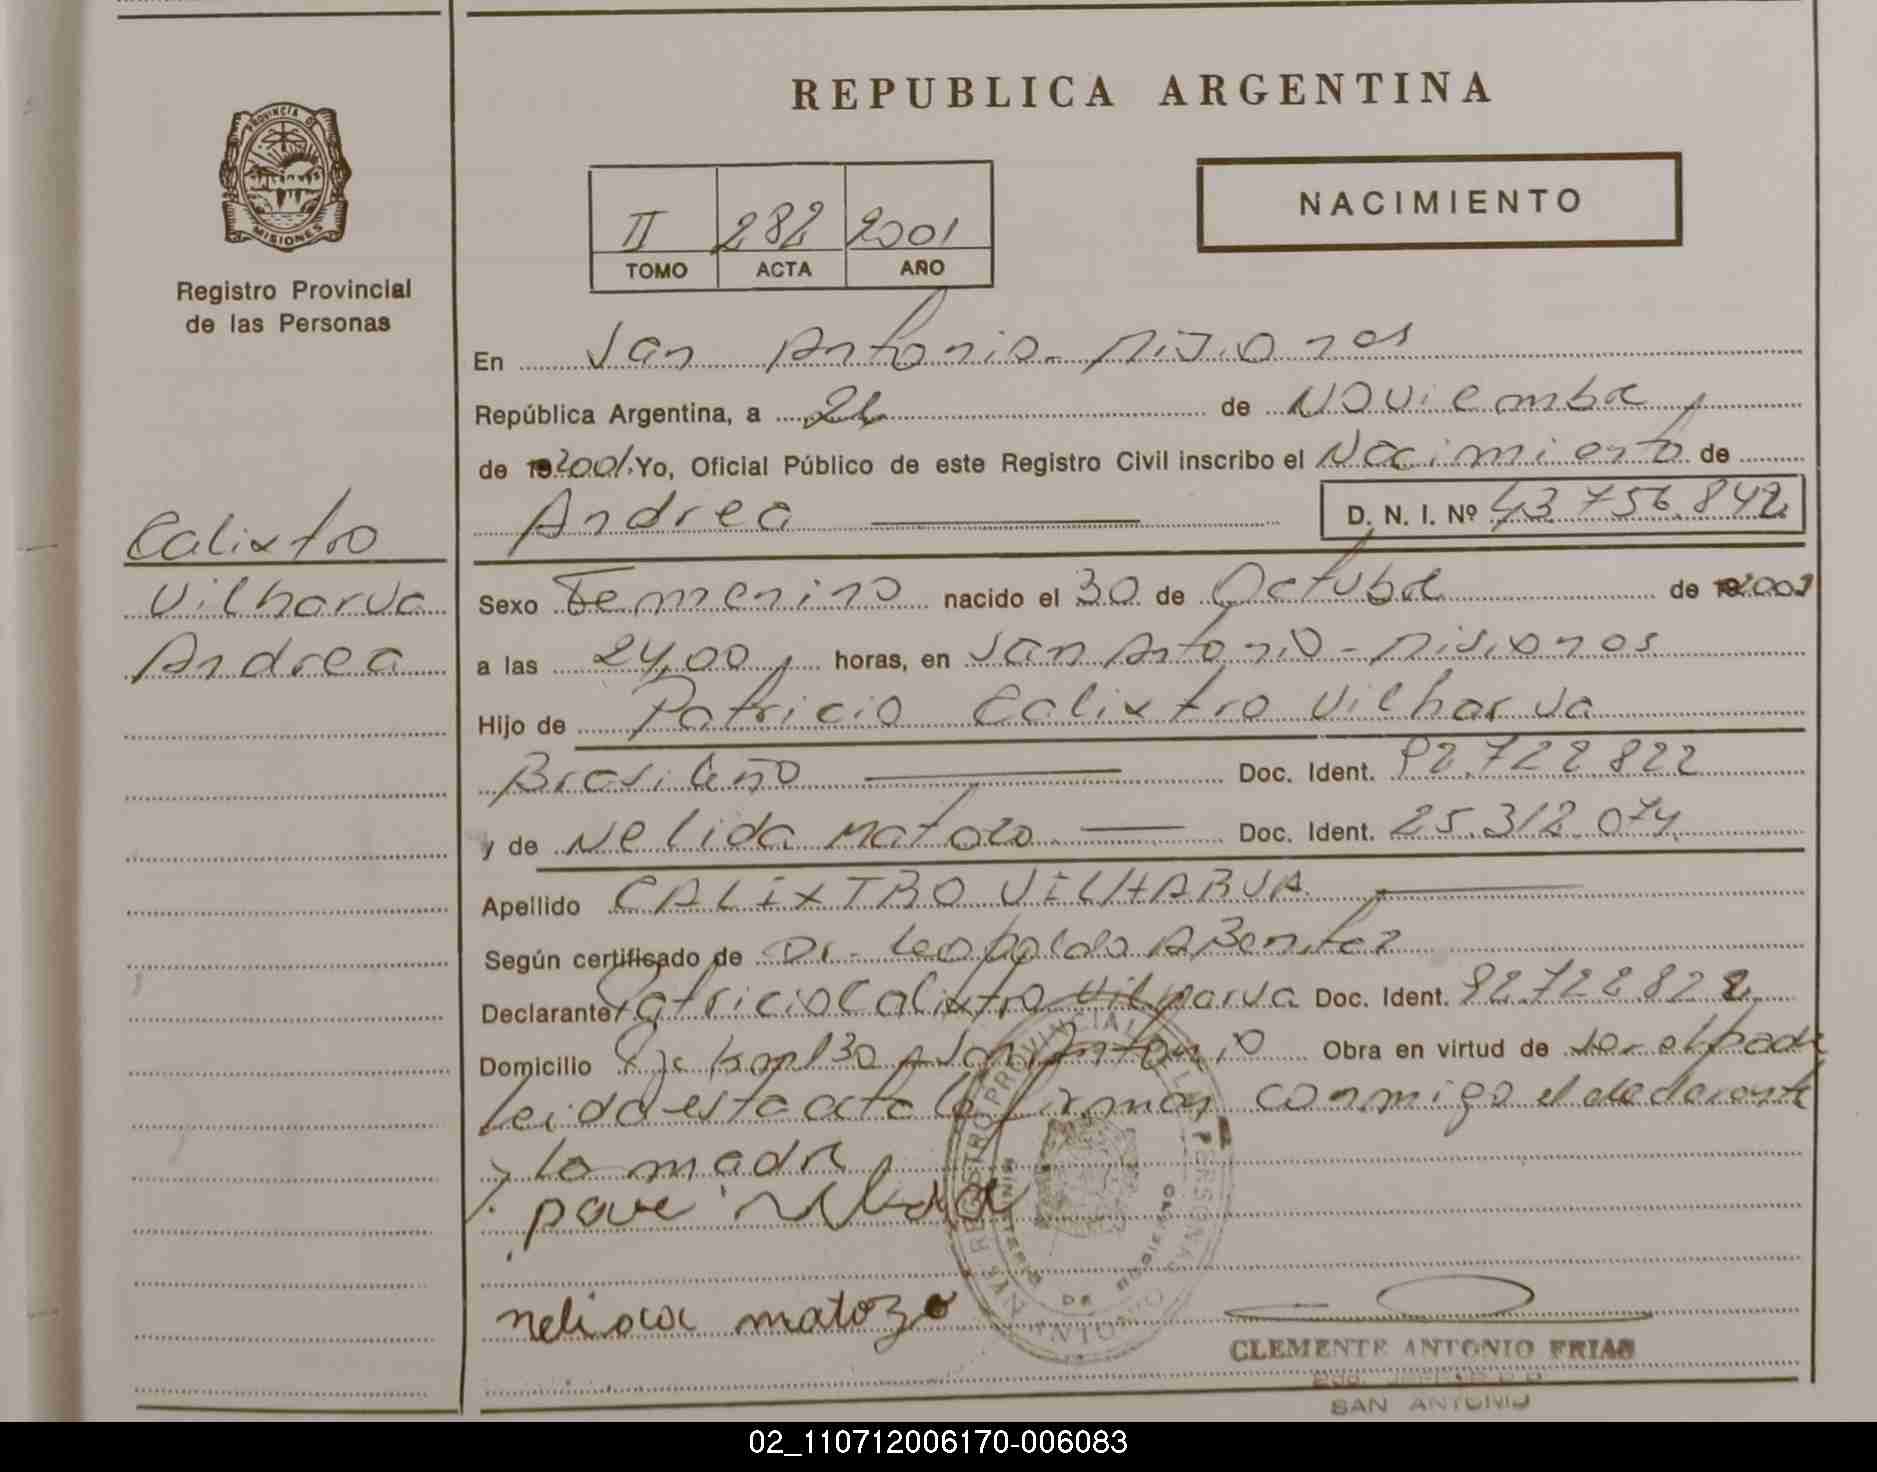 REPUBLICA ARGENTINA
PROVINCIA DE
MISIONES
Registro Provincial
de las Personas
II 282 2001
TOMO ACTA AÑO
NACIMIENTO
En San Antonio - Misiones
República Argentina, a 21 de Noviembre
de 2001. Yo, Oficial Público de este Registro Civil inscribo el Nacimiento de
Andrea D. N. I. Nº 43.756.842
Calixtro
Vilharva
Andrea
Sexo Femenino nacido el 30 de Octubre de 2001
a las 24,00 horas, en San Antonio - Misiones
Hijo de Patricio Calixtro Vilharva
Brasileño Doc. Ident. 92.722.822
y de Nelida Matozo Doc. Ident. 25.312.074
Apellido CALIXTRO VILHARVA
Según certificado de Dr. Leopoldo A Benitez
Declarante Patricio Calixtro Vilharva Doc. Ident. 92.722.822
Domicilio San Antonio Obra en virtud de ser el padre
leida esta acta la firman conmigo el declarante
y la madre
nelida matozo
REGISTRO PROVINCIAL DE LAS PERSONAS
MINISTERIO DE GOBIERNO
SAN ANTONIO
CLEMENTE ANTONIO FRIAS
SAN ANTONIO
02_110712006170-006083